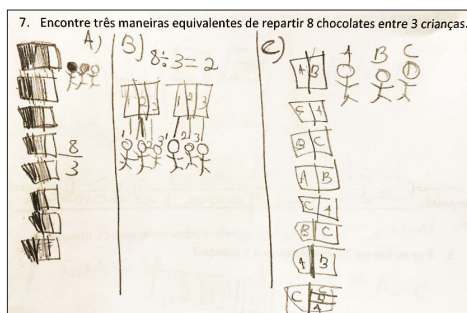 7. Encontre três maneiras equivalentes de repartir 8 chocolates entre 3 crianças.
A)
8
3
B)
8÷3=2
1 2 3 1 2 3
1 2 3 1 2 3
C)
A B C
A B
C A
B C
A B
C A
B C
A B
C C
B
A